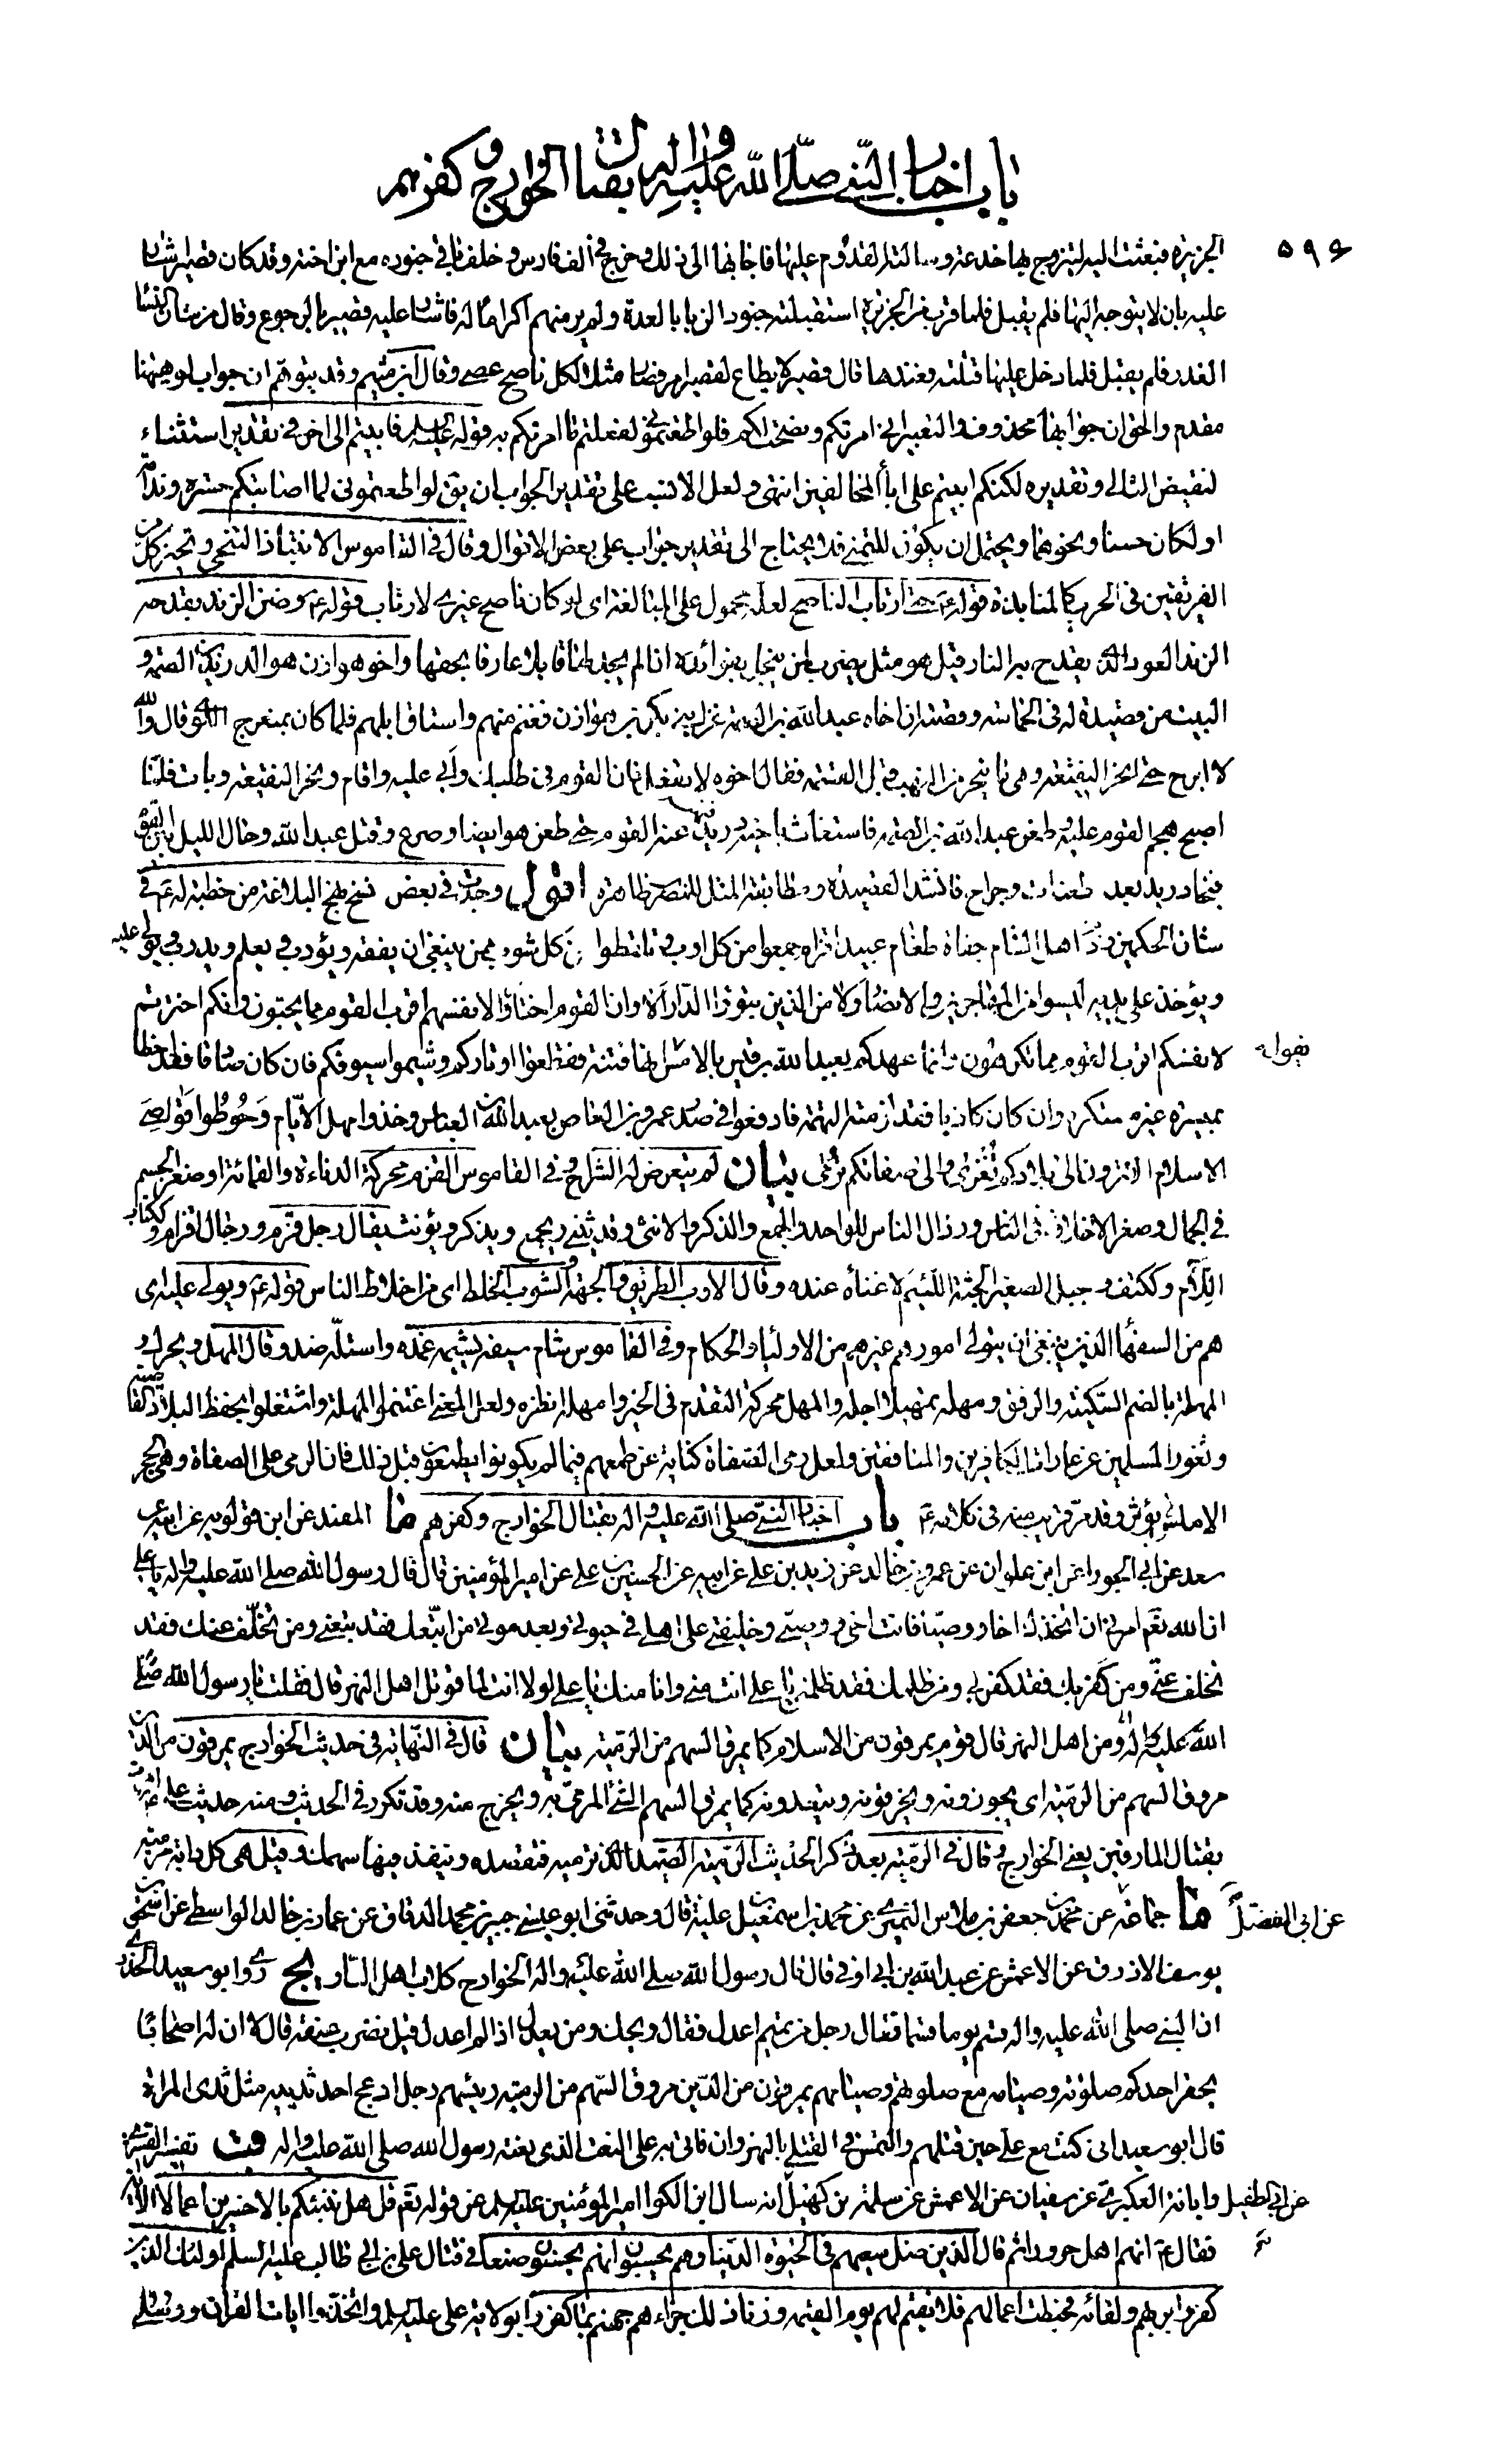 باب اخبار النبي صلى الله عليه واله بقتال الخوارج وكفرهم
۵۹۶
الجزيرة فبعثت اليه ليتزوج بها خدعة وسالته القدوم عليها فاجابها الى ذلك وخرج في الف فارس وخلف باقي جنوده مع ابن اخته وقد كان قصير اشار
عليه بان لا يتوجه اليها فلم يقبل فلما قرب من الجزيرة استقبلته جنود الزبا بالعدة ولم ير منهم اكراما له فاشار عليه قصير بالرجوع وقال من شان النساء
الغدر فلم يقبل فلما دخل عليها قتلته فعندها قال قصير لا يطاع لقصير امر فصار مثلا لكل ناصح عصي وقال ابن ميثم وقد يتوهم ان جواب لو ههنا
مقدم والحق ان جوابها محذوف والتقدير اني امرتكم ونصحت لكم فلو اطعتموني لفعلتم ما امرتكم به قوله عليه السلم فابيتم الى اخره في تقدير استثناء
لنقيض التالي وتقديره لكنكم ابيتم علي اباء المخالفين انتهى ولعل الانسب على تقدير الجواب ان يق لو اطعتموني لما اصابتكم حسرة وندامة
او لكان حسنا ونحوهما ويحتمل ان يكون للتمني فلا يحتاج الى تقدير جواب على بعض الاقوال وقال في القاموس الانتباذ التنحي وتحيز كل من
الفريقين في الحرب كالمنابذة قوله ع حتى ارتاب الناصح لعله محمول على المبالغة اي لو كان ناصح غيري لارتاب قوله ع وضن الزند بقدحه
الزند العود الذي يقدح به النار قيل هو مثل يضرب لمن يبخل بفوائده اذا لم يجد لها قابلا عارفا بحقها واخو هوازن هو الدريد بن الصمة و
البيت من قصيدة له في الحماسة وقصته ان اخاه عبد الله بن الصمة غزا بني بكر بن هوازن فغنم منهم واستاق ابلهم فلما كان بمنعرج اللوى قال والله
لا ابرح حتى انحر النقيعة وهي ما ينحر من النهب قبل القسمة فقال اخوه لا تفعل فان القوم في طلبك وابى عليه واقام ونحر النقيعة وبات فلما
اصبح هجم القوم عليه وطعن عبد الله بن الصمة فاستغاث باخيه دريد فنهنه عنه القوم حتى طعن هو ايضا وصرع وقتل عبد الله وحال الليل بين القوم
فنجا دريد بعد طعنات وجراح فانشد القصيدة ومطابقة المثل للمضرب ظاهرة اقول وجدت في بعض نسخ نهج البلاغة من خطبة له ع في
شان الحكمين وذم اهل الشام جفاة طغام عبيد اقزام جمعوا من كل اوب وتلقطوا من كل شوب ممن ينبغي ان يفقه ويؤدب ويعلم ويدرب ويولى عليه
ويؤخذ على يديه ليسوا من المهاجرين والانصار ولا من الذين تبوؤا الدار الا وان القوم اختاروا لانفسهم اقرب القوم مما يحبون وانكم اخترتم
لانفسكم اقرب القوم مما تكرهون وانما عهدكم بعبد الله بن قيس بالامس يقول انها فتنة فقطعوا اوتاركم وشيموا سيوفكم فان كان صادقا فقد اخطا
بمسيره غير مستكره وان كان كاذبا فقد لزمته التهمة فادفعوا في صدر عمرو بن العاص بعبد الله بن العباس وخذوا مهل الايام وحوطوا قواصي
الاسلام الا ترون الى بلادكم تغزى والى صفاتكم ترمى بيان لم يتعرض له الشراح وفي القاموس القزم محركة الدناءة والقماءة او صغر الجسم
في الجمال وصغر الاخلاق في الناس ورذال الناس للواحد والجمع والذكر والانثى وقد يثنى ويجمع ويذكر ويؤنث يقال رجل قزم ورجال اقزام وككتاب
اللئام وككتف وجبل الصغير الجثة اللئيم لا غناء عنده وقال الاوب الطريق والجهة والشوب الخلط اي من اخلاط الناس قوله ع ويولى عليه اي
هم من السفهاء الذين ينبغي ان يتولى امورهم غيرهم من الاولياء والحكام وفي القاموس شام سيفه يشيمه غمده واستله ضد وقال المهل ويحرك و
المهلة بالضم السكينة والرفق ومهله تمهيلا اجله والمهل محركة التقدم في الخير وامهله انظره ولعل المعنى اغتنموا المهلة واشتغلوا بحفظ البلاد القاصية
وثغور المسلمين عن غارات الكافرين والمنافقين ولعل رمي الصفاة كناية عن طمعهم فيما لم يكونوا يطمعون قبل ذلك فان الرمي على الصفاة وهي الحجر
الاملس لا يؤثر وقد مر قريب منه في كلامه ع باب اخبار النبي صلى الله عليه واله بقتال الخوارج وكفرهم ما المفيد عن ابن قولويه عن ابيه عن
سعد عن ابي الجوزاء عن ابن علوان عن عمرو بن خالد عن زيد بن علي عن ابيه عن الحسين بن علي عن امير المؤمنين قال قال رسول الله صلى الله عليه واله يا علي
ان الله تعم امرني ان اتخذك اخا ووصيا فانت اخي ووصيي وخليفتي على اهلي في حيوتي وبعد موتي من اتبعك فقد تبعني ومن تخلف عنك فقد
تخلف عني ومن كفر بك فقد كفر بي ومن ظلمك فقد ظلمني يا علي انت مني وانا منك يا علي لولا انت لما قوتل اهل النهر قال فقلت يا رسول الله صلى
الله عليه واله ومن اهل النهر قال قوم يمرقون من الاسلام كما يمرق السهم من الرمية بيان قال في النهاية في حديث الخوارج يمرقون من الدين
مروق السهم من الرمية اي يجوزونه ويخرقونه ويتعدونه كما يمرق السهم الشئ المرمي به ويخرج منه وقد تكرر في الحديث ومنه حديث علي ع امرت
بقتال المارقين يعني الخوارج وقال في الرمية بعد ذكر الحديث الرمية الصيد الذي ترميه فتقصده وينفذ فيها سهمك وقيل هي كل دابة مرمية
ما جماعة عن ابي المفضل عن محمد بن جعفر بن ملاس النميري عن محمد بن اسمعيل بن علية قال وحدثني ابو عيسى جبير بن محمد الدقاق عن عمار بن خالد الواسطي عن اسحق بن
يوسف الازرق عن الاعمش عن عبد الله بن ابي اوفى قال قال رسول الله صلى الله عليه واله الخوارج كلاب اهل النار يج روى ابو سعيد الخدري
ان النبي صلى الله عليه واله قسم يوما قسما فقال رجل من تميم اعدل فقال ويحك ومن يعدل اذا لم اعدل قيل نضرب عنقه قال لا ان له اصحابا
يحقر احدكم صلوته وصيامه مع صلوتهم وصيامهم يمرقون من الدين مروق السهم من الرمية رئيسهم رجل ادعج احد ثدييه مثل ثدي المراة
قال ابو سعيد اني كنت مع علي حين قتلهم والتمس في القتلى بالنهروان فاتي به على النعت الذي نعته رسول الله صلى الله عليه واله قب تفسير القشيري
وابانة العكبري عن سفيان عن الاعمش عن سلمة بن كهيل عن ابي الطفيل انه سال ابن الكوا امير المؤمنين عليه السلم عن قوله تعم قل هل ننبئكم بالاخسرين اعمالا الاية
فقال ع انهم اهل حروراء ثم قال الذين ضل سعيهم في الحيوة الدنيا وهم يحسبون انهم يحسنون صنعا في قتال علي بن ابي طالب عليه السلم اولئك الذين
كفروا بربهم ولقائه فحبطت اعمالهم فلا نقيم لهم يوم القيمة وزنا ذلك جزاءهم جهنم بما كفروا بولاية علي عليه السلم واتخذوا ايات القران ورسلي